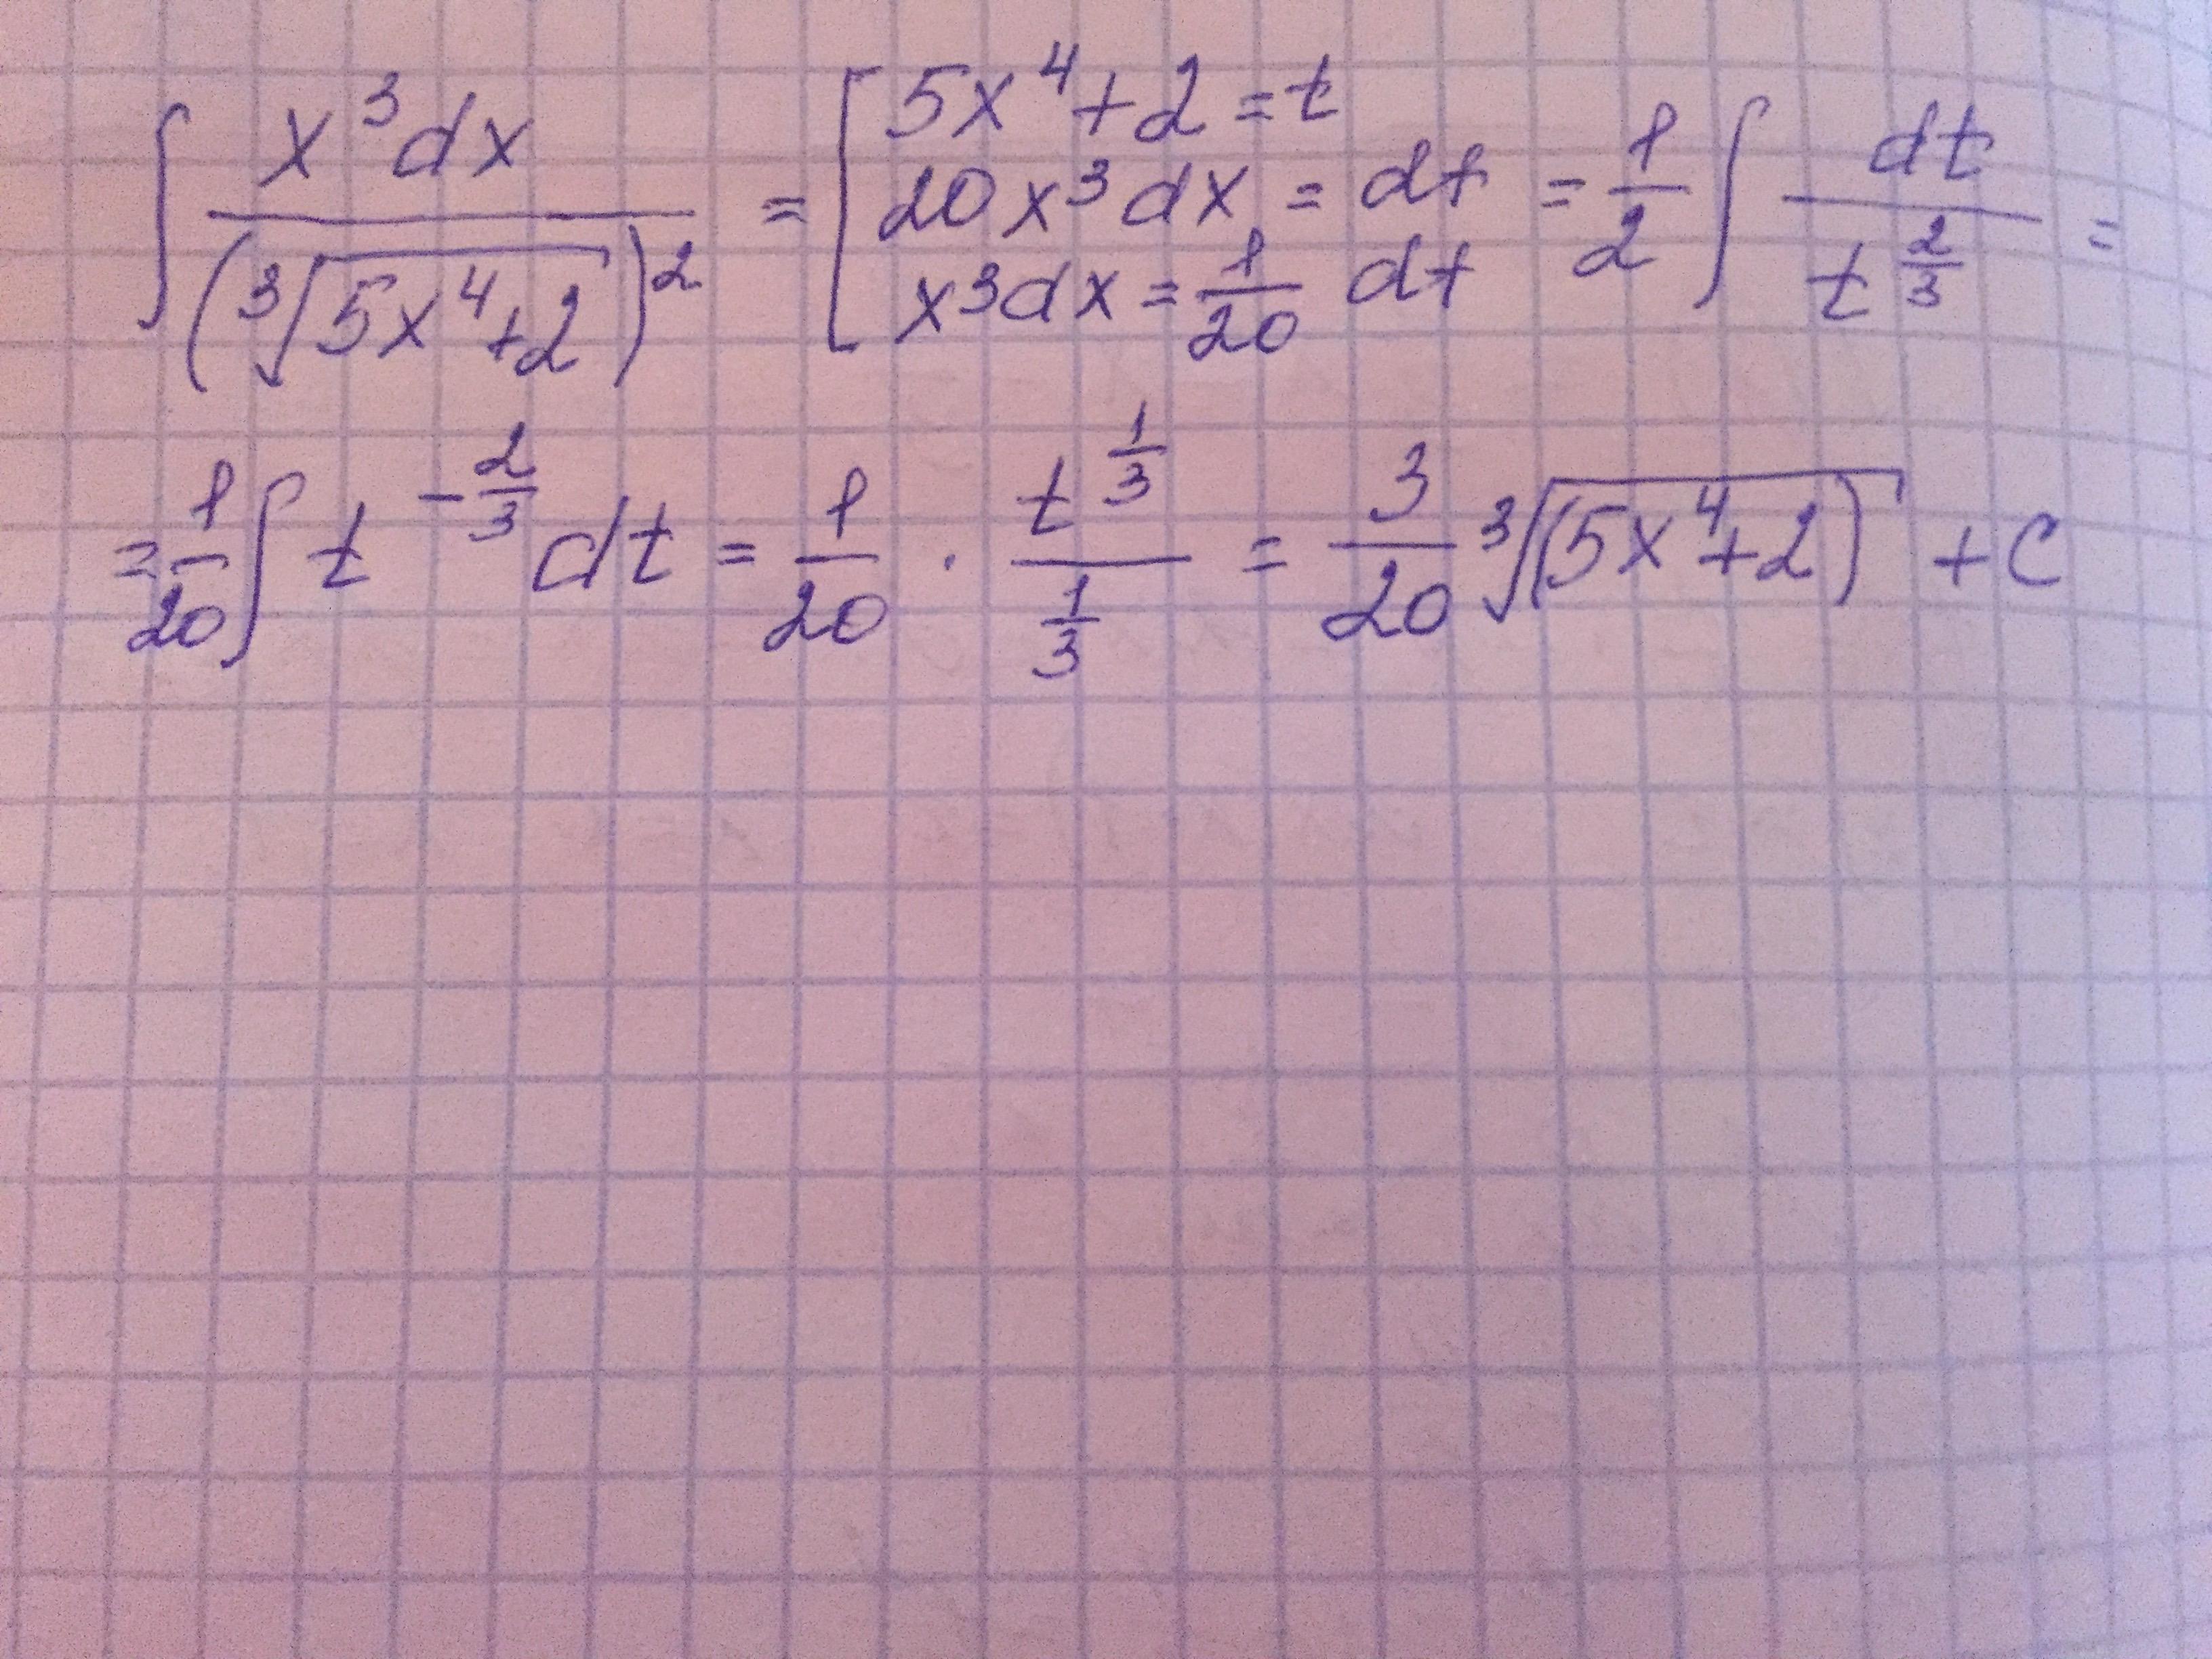 ∫ x³dx / (∛(5x⁴+2))² = [ 5x⁴+2 = t
20x³dx = dt
x³dx = 1/20 dt = 1/2 ∫ dt / t^(2/3) =
= 1/20 ∫ t^(-2/3) dt = 1/20 · t^(1/3) / (1/3) = 3/20 ∛(5x⁴+2) + C